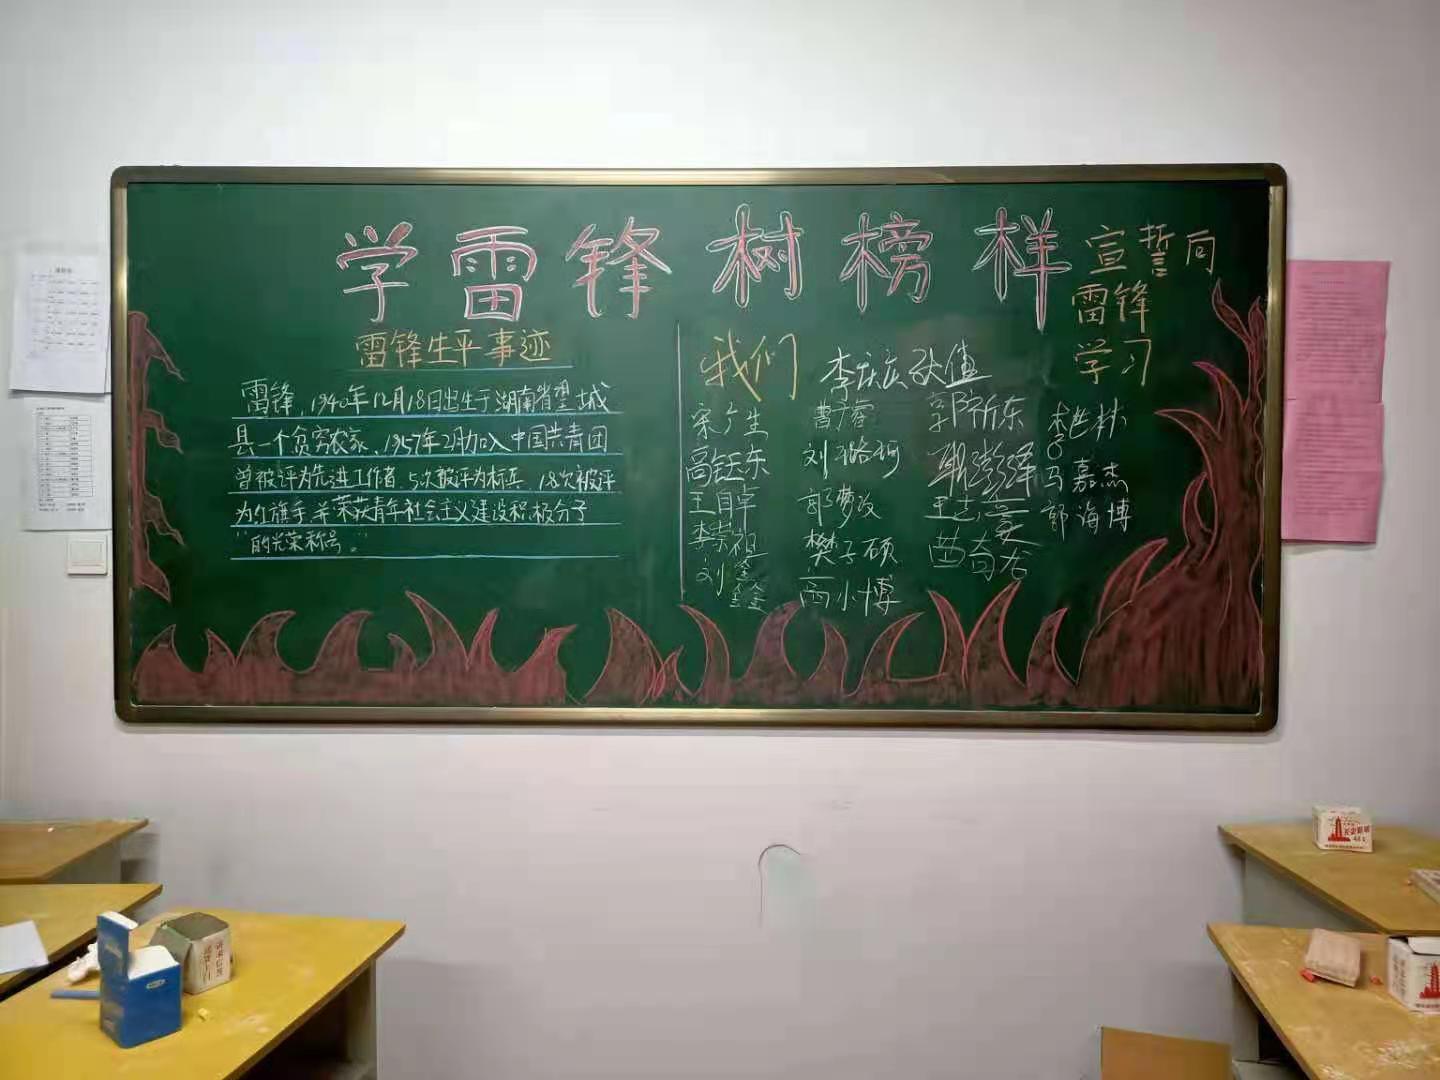 学雷锋树榜样
雷锋生平事迹
雷锋，1940年12月18日出生于湖南省望城
县一个贫穷农家，1957年2月加入中国共青团
曾被评为先进工作者，5次被评为标兵，18次被评
为红旗手，并荣获青年社会主义建设积极分子
"的光荣称号。"
我们
宋广生
高钰东
王自军
李崇祖
刘鑫鑫
曹广睿
刘璐珂
郭梦改
樊子硕
西小博
郭祈东
马嘉杰
郭海博
宣誓向
雷锋
学习